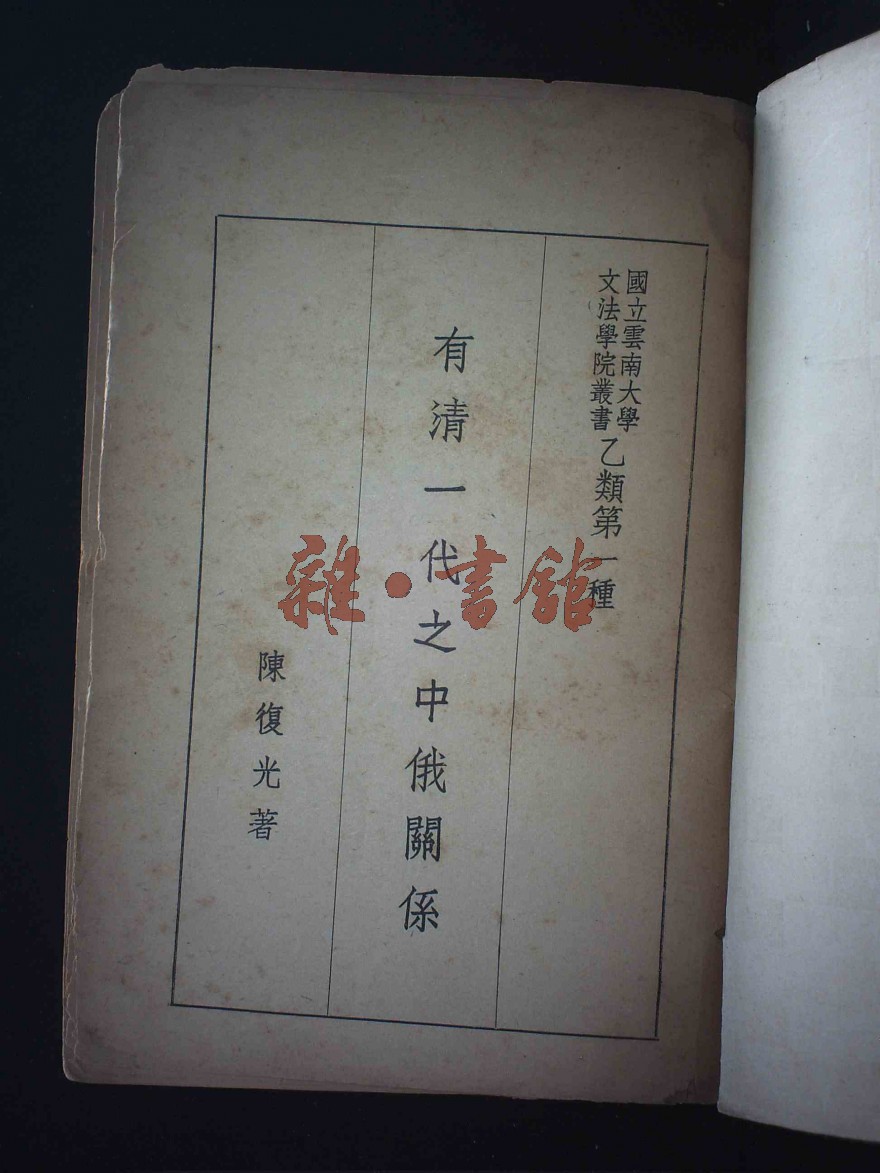 國立雲南大學
文法學院叢書
乙類第一種
有清一代之中俄關係
陳復光著
雜·書館